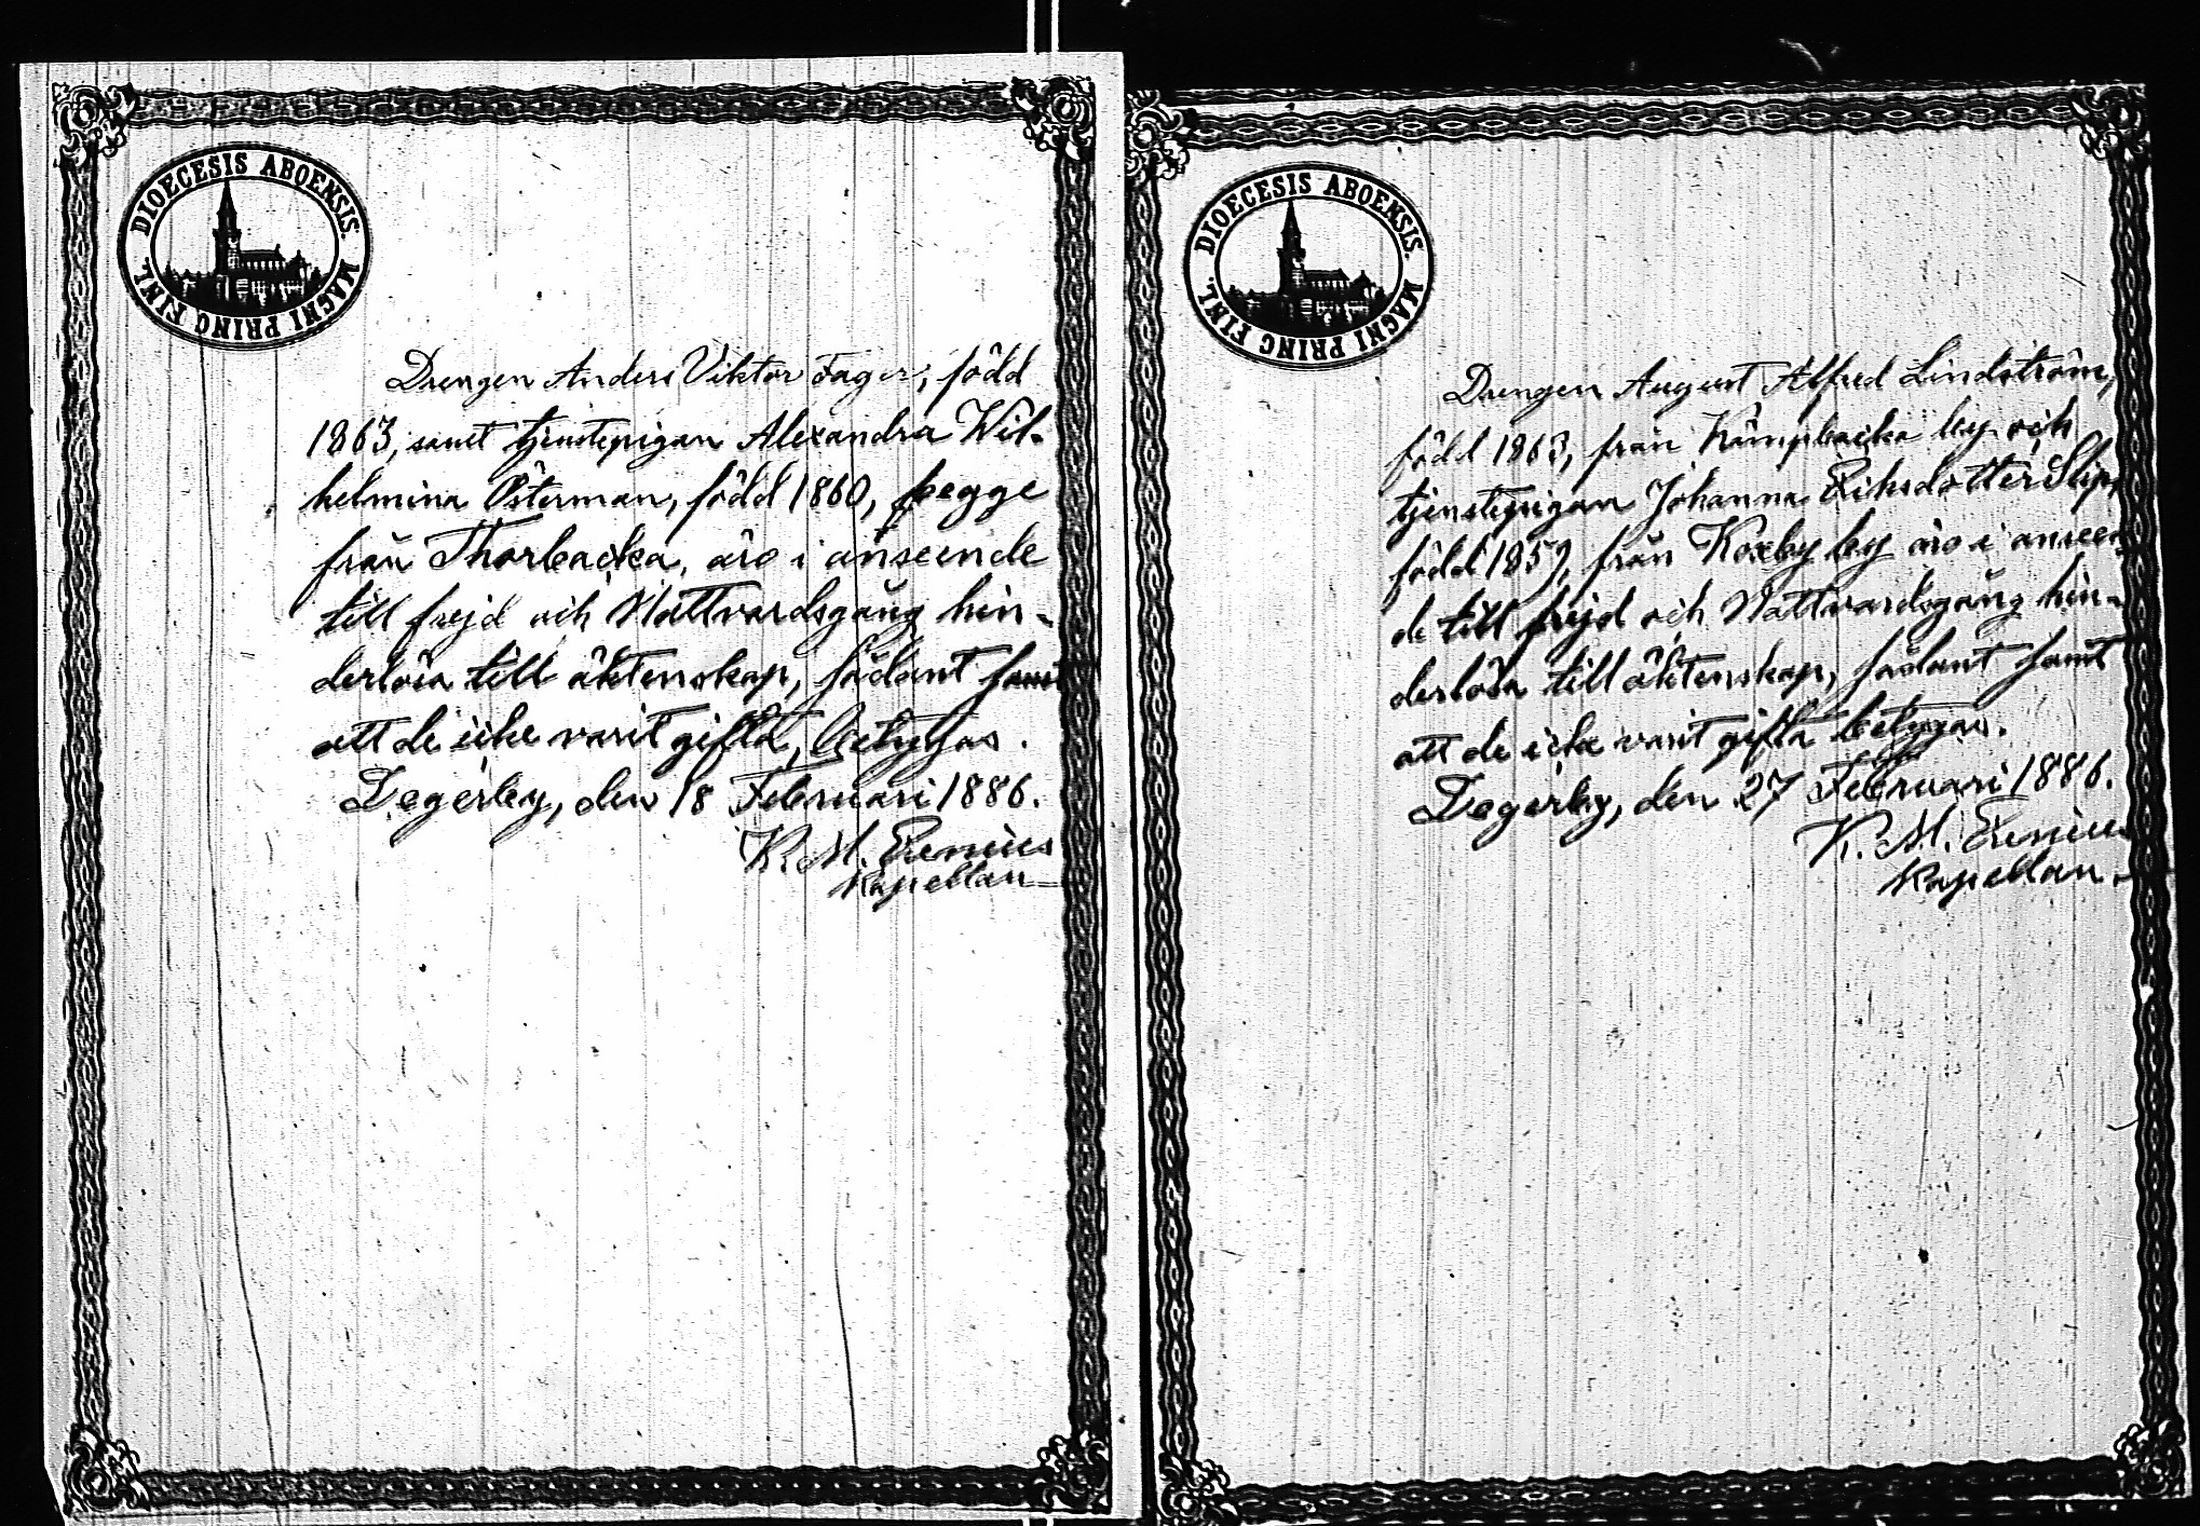 DIOECESIS ABOENSIS. MAGNI PRINC FINL.
Drengen Anders Viktor Fager, född
1863, samt tjenstepigan Alexandra Wil-
helmina Österman, född 1860, begge
från Thorbacka, äro i anseende
till frejd och Nattvardsgång hin-
derlösa till äktenskap, sådant samt
att de icke varit gifta, betygas.
Degerby, den 18 Februari 1886.
K. M. Erenius
Kapellan
DIOECESIS ABOENSIS. MAGNI PRINC FINL.
Drengen August Alfred Lindström,
född 1863, från Kämpbacka by och
tjenstepigan Johanna Eriksdotter Slip,
född 1859, från Koxby by äro i anseen-
de till frejd och Nattvardsgång hin-
derlösa till äktenskap, sådant samt
att de icke varit gifta betygas.
Degerby, den 27 Februari 1886.
K. M. Erenius
Kapellan.